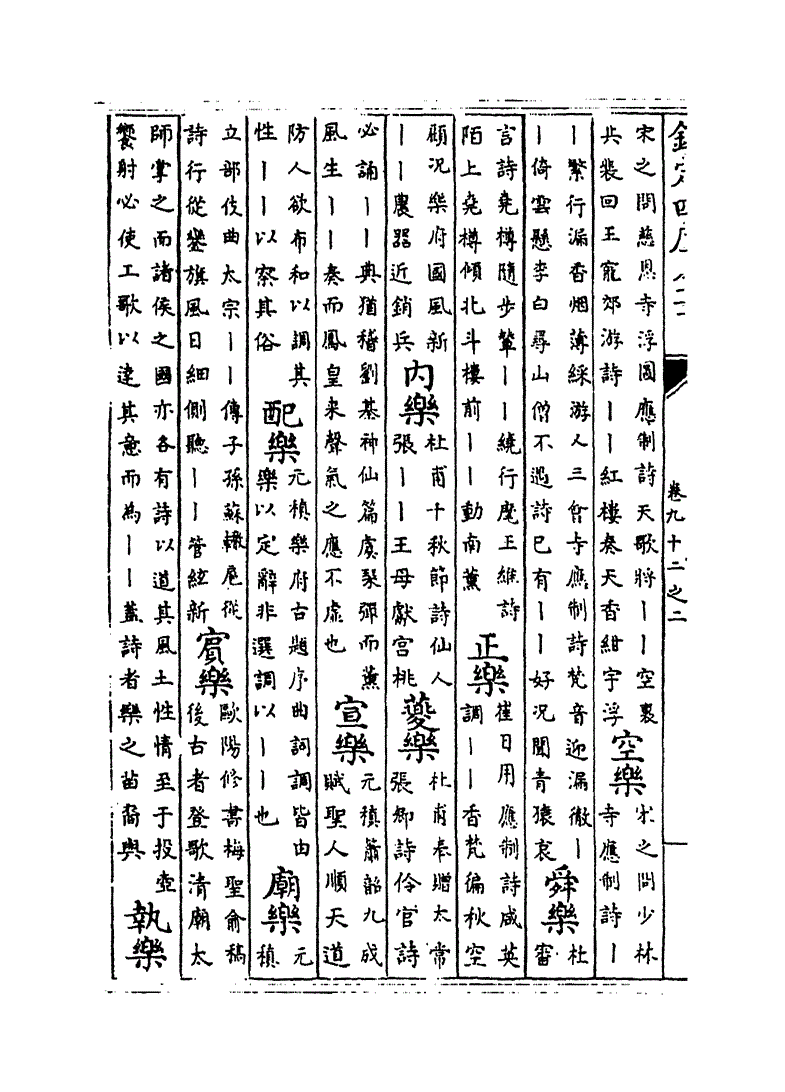 卷九十二之二
宋之問慈恩寺浮圖應制詩天歌將丨丨空裏
共裴回王寵郊游詩丨丨紅樓奏天香紺宇浮
空樂
宋之問少林
寺應制詩丨
丨繁行漏香烟薄綵游人三會寺應制詩梵音迎漏徹丨
丨倚雲懸李白尋山僧不遇詩已有丨丨好況聞青猿哀
舜樂
杜
審
言詩堯樽隨步輦丨丨繞行麾王維詩
陌上堯樽傾北斗樓前丨丨動南薰
正樂
崔日用應制詩咸英
調丨丨香梵徧秋空
顧況樂府國風新
丨丨農器近銷兵
内樂
杜甫千秋節詩仙人
張丨丨王母獻宫桃
夔樂
杜甫奉贈太常
張卿詩伶官詩
必誦丨丨典猶稽劉基神仙篇虞琴彈而薰
風生丨丨奏而鳳皇来聲氣之應不虚也
宣樂
元稹簫韶九成
賦聖人順天道
防人欲布和以調其
性丨丨以察其俗
配樂
元稹樂府古題序曲詞調皆由
樂以定辭非選調以丨丨也
廟樂
元
稹
立部伎曲太宗丨丨傳子孫蘇轍扈從
詩行從鑾旗風日細側聽丨丨管絃新
賓樂
歐陽修書梅聖俞稿
後古者登歌清廟太
師掌之而諸侯之國亦各有詩以道其風土性情至于投壺
饗射必使工歌以達其意而為丨丨蓋詩者樂之苗裔與
執樂